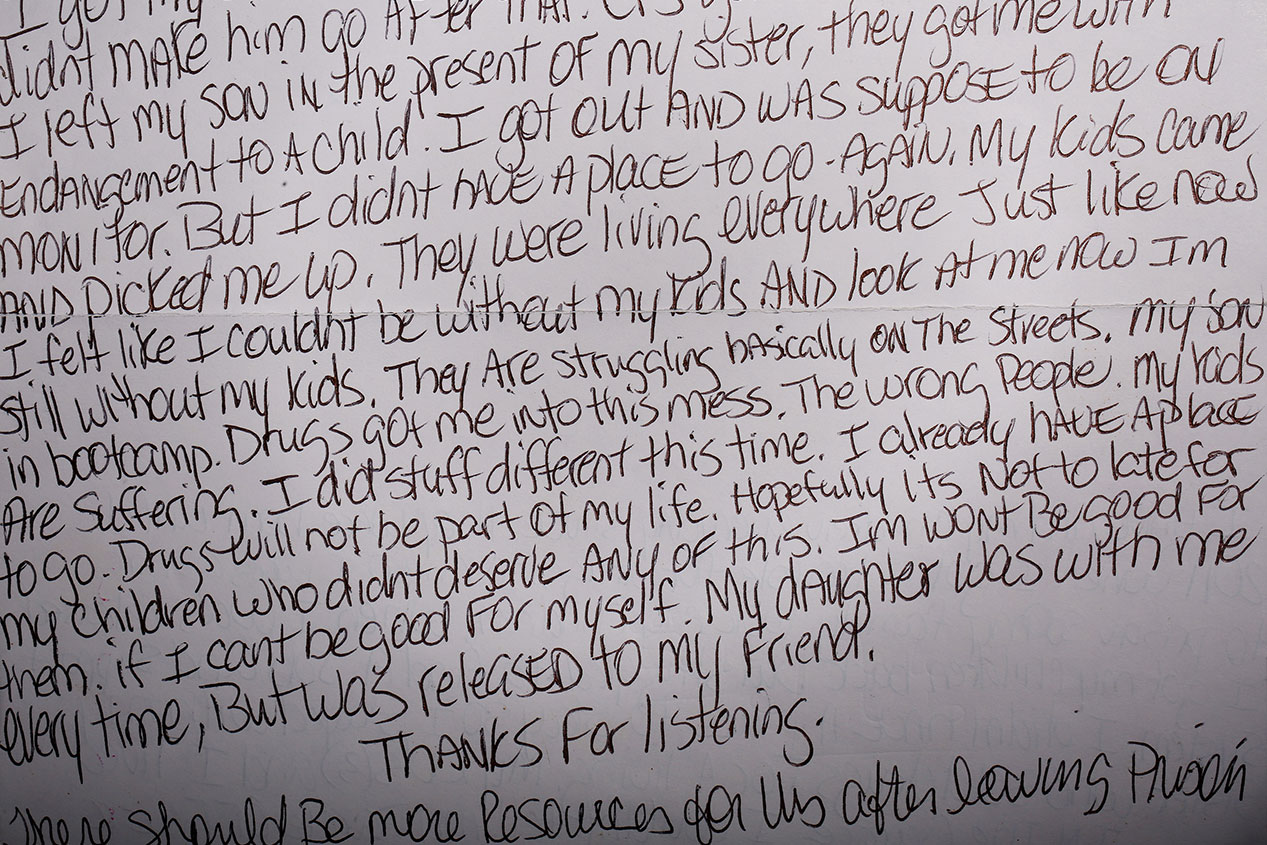 I got my
didnt make him go After that.
I left my son in the present of my sister, they got me with
Endangement to A child. I got out AND WAS suppose to be on
monitor. But I didnt have A place to go - AgAin. My kids came
AND picked me up. They were living everywhere Just like now
I felt like I couldnt be without my kids AND look At me now Im
still without my kids. They Are struggling basically on The streets. My son
in bootcamp. Drugs got me into this mess. The wrong people. my kids
Are suffering. I did stuff different this time. I already have A place
to go. Drugs will not be part of my life. Hopefully its Not to late for
my children who didnt deserve Any of this. Im wont Be good For
them. if I cant be good For myself. My daughter was with me
every time, But was released to my Friend.
THANKS For listening.
There should Be more Resources for Us after leaving Prison